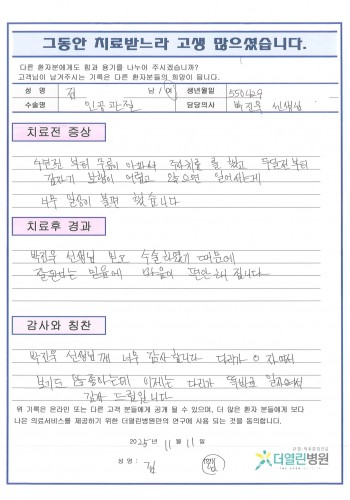 그동안 치료받느라 고생 많으셨습니다.
다른 환자분에게도 힘과 용기를 나누어 주시겠습니까?
고객님이 남겨주시는 기록은 다른 환자분들의 희망이 됩니다.
성 명 김 남 / 여 생년월일 550429
수술명 인공관절 담당의사 박진욱 선생님
치료전 증상
수년전 부터 무릎이 아파서 주사치료를 했고 두달전부터
갑자기 보행이 어렵고 앉으면 일어서는게
너무 일상이 불편 했습니다
치료후 경과
박진욱 선생님 믿고 수술하였기 때문에
잘된다는 믿음에 마음이 편안해 집니다
감사와 칭찬
박진욱 선생님께 너무 감사합니다 다리가 O 자여서
보기도 흉했는데 이제는 다리가 똑바로
감사 드립니다
위 기록은 온라인 또는 다른 고객 분들에게 공개 될 수 있으며, 더 많은 환자 분들에게 보다
나은 의료서비스를 제공하기 위한 더열린병원만의 연구에 사용 되는 것을 동의합니다.
2025년 11월 11일
성 명 : 김
더열린병원